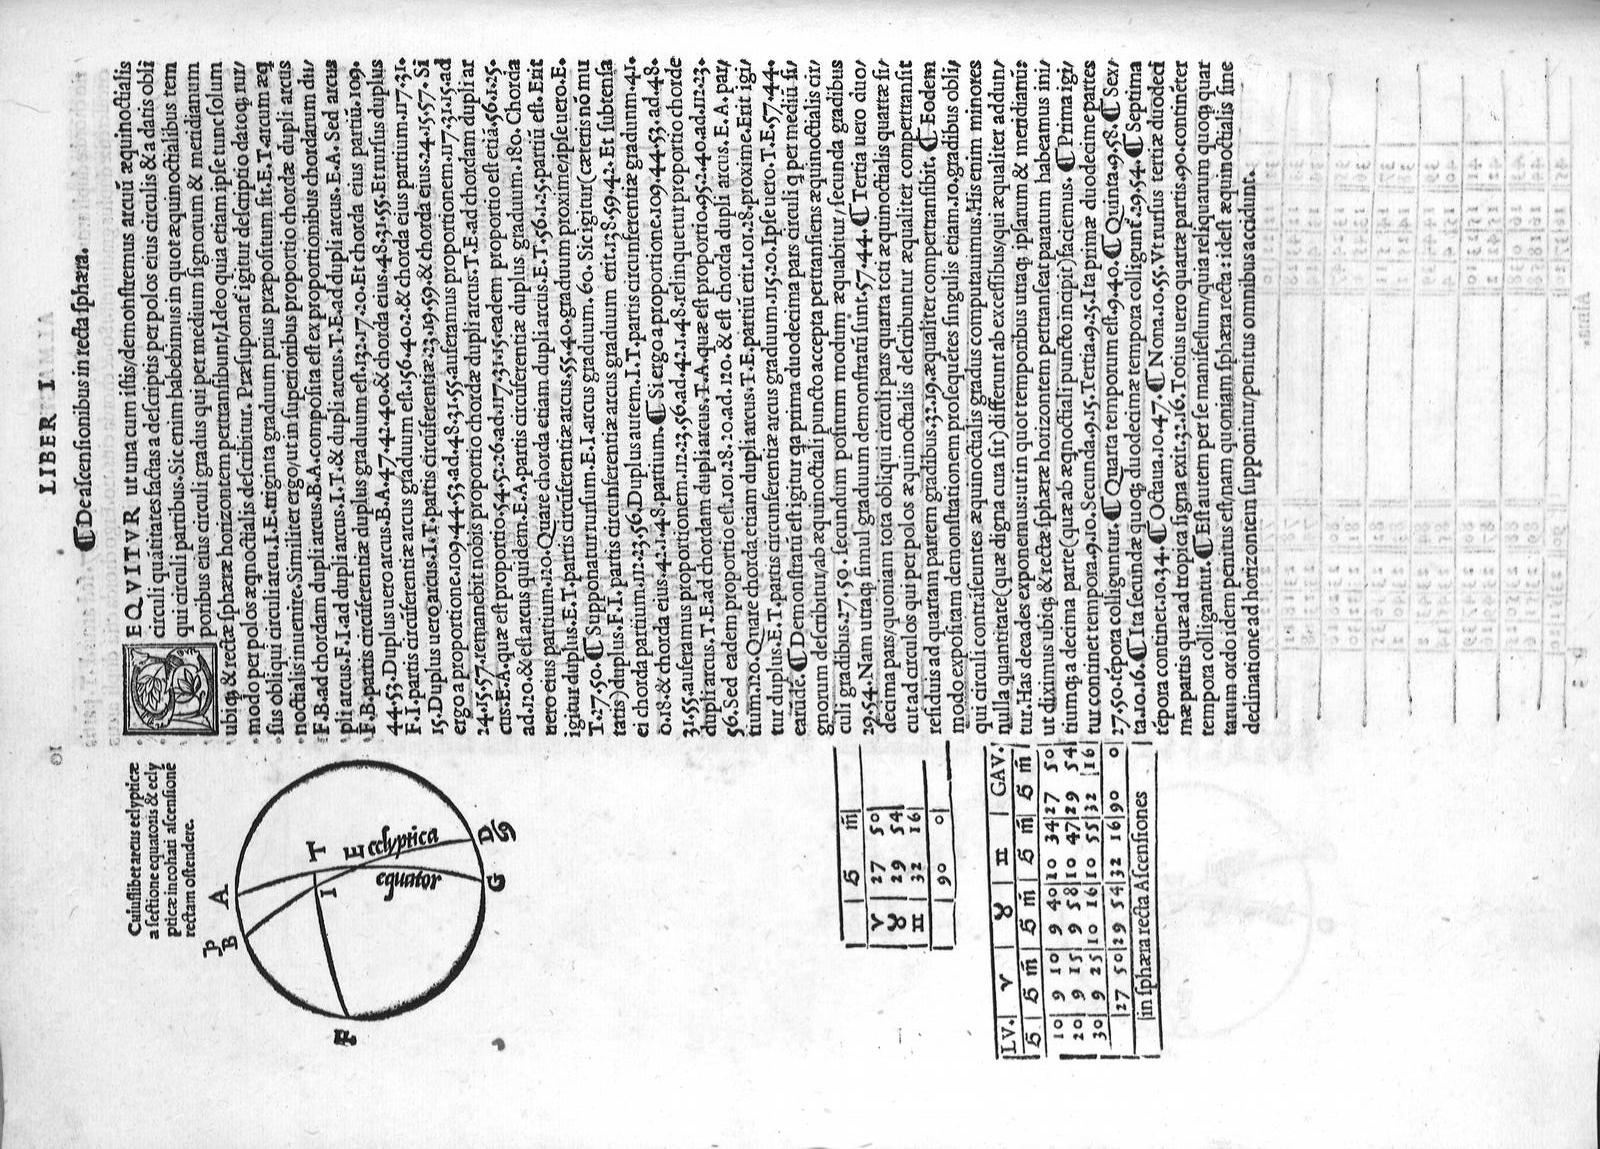 LIBER I
¶De ascensionibus in recta sphæra.
EQVITVR ut una cum istis/demonstremus arcuū æquinoctialis
circuli quātitates factas a descriptis per polos eius circulis & a datis obli
qui circuli partibus. Sic enim habebimus in quot æquinoctialibus tem
poribus eius circuli gradus qui per medium signorum & meridianum
ubiq̧ & rectæ sphæræ horizontem pertransibunt/Ideo quia etiam ipse tunc solum
modo per polos æqnoctialis describitur. Præsuponat́ igitur descriptio datoq̧ rur/
sus obliqui circuli arcu.I.E.triginta graduum prius præpositum sit.E.T.arcum æq
noctialis inuenire.Similiter ergo/ut in superioribus proportio chordæ dupli arcus
F.B.ad chordam dupli arcus.B.A.composita est ex proportionibus chordarum du/
pli arcus.F.I.ad dupli arcus.I.T.& dupli arcus.T.E.ad dupli arcus.E.A.Sed arcus
F.B.partis circūferentiæ duplus graduum est.132.17.20.Et chorda eius partiū.109.
44.53.Duplus uero arcus.B.A.47.42.40.& chorda eius.48.31.55.Et rursus duplus
F.I.partis circūferentiæ arcus graduum est.156.40.2.& chorda eius partium.117.31.
15.Duplus uero arcus.I.T.partis circūferentiæ.23.19.59.& chorda eius.24.15.57.Si
ergo a proportione.109.44.53.ad.48.31.55.auferamus proportionem.117.31.15.ad
24.15.57.remanebit nobis proportio chordæ dupli arcus.T.E.ad chordam dupli ar
cus.E.A.quæ est proportio.54.52.26.ad.117.31.15.eadem proportio est etiā.56.1.25.
ad.120.& est arcus quidem.E.A.partis circūferentiæ duplus graduum.180.Chorda
uero eius partium.120.Quare chorda etiam dupli arcus.E.T.56.1.25.partiū est.Erit
igitur duplus.E.T.partis circūferentiæ arcus.55.40.graduum proxime/ipse uero.E.
T.27.50.¶Supponatur rursum.E.I.arcus graduum.60.Sic igitur(cæteris nō mu
tatis)duplus.F.I.partis circūnferentiæ arcus graduum erit.138.59.42.Et subtensa
ei chorda partium.112.23.56.Duplus autem.I.T.partis circunferentiæ gradum.41.
0.18.& chorda eius.42.1.48.partium.¶Si ergo a proportione.109.44.53.ad.48.
31.55.auferamus proportionem.112.23.56.ad.42.1.48.relinquetur proportio chorde
dupli arcus.T.E.ad chordam dupli arcus.T.A.quæ est proportio.95.2.40.ad.112.23.
56.Sed eadem proportio est.101.28.20.ad.120.& est chorda dupli arcus.E.A.par/
tium.120.Quare chorda etiam dupli arcus.T.E.partiū erit.101.28.proxime.Erit igi/
tur duplus.E.T.partis circunferentiæ arcus graduum.115.20.Ipse uero.T.E.57.44.
earūdē.¶Demonstratū est igitur qa prima duodecima pars circuli q per mediū si/
gnorum describitur/ab æquinoctiali puncto accepta pertransiens æquinoctialis cir/
culi gradibus.27.50.secundum positum modum æquabitur/secunda gradibus
29.54.Nam utraq̧ simul graduum demonstrati sunt.57.44.¶Tertia uero duo/
decima pars/quoniam tota obliqui circuli pars quarta toti æqunoctialis quartæ si/
cut ad circulos qui per polos æquinoctialis describuntur æqualiter compertransit
residuis ad quartam partem gradibus.32.19.æqualiter compertransibit.¶Eodem
modo expositam demonstrationem prosequētes singulis etiam.10.gradibus obli/
qui circuli contrāseuntes æquinoctialis gradus computauimus.His enim minores
nulla quantitate(quæ digna cura sit)differunt ab excessibus/qui æqualiter addun/
tur.Has decades exponemus:ut in quot temporibus utraq̧ ipsarum & meridianū:
ut diximus ubiq̧ & rectæ sphæræ horizontem pertranseat paratum habeamus ini/
tiumq̧ a decima parte(quæ ab æqnoctiali puncto incipit)faciemus.¶Prima igi/
tur continet tempora.9.10.Secunda.9.15.Tertia.9.25.Ita primæ duodecime partes
27.50.tēpora colliguntur.¶Quarta temporum est.9.40.¶Quinta.9.58.¶Sex/
ta.10.16.¶Ita secundæ quoq̧ duodecimæ tempora colligunt́.29.54.¶Septima
tēpora continet.10.34.¶Octaua.10.47.¶Nona.10.55.Vt rursus tertiæ duodeci
mæ partis quæ ad tropica signa exit.32.16.Totius uero quartæ partis.90.continēter
tempora colligantur.¶Est autem per se manifestum/quia reliquarum quoq̧ quar
tarum ordo idem penitus est/nam quoniam sphæra recta:idest æquinoctialis sine
declinatione ad horizontem supponitur/penitus omnibus accidunt.
Cuiuslibet arcus eclypticæ
a sectione equatoris & ecly
pticæ incohati ascensionē
rectam ostendere.
A
B
T
I
E
ecclyptica
equator
D
G
♈ 27 50
♉ 29 54
♊ 32 16
90 0
LV. ♈ ♉ ♊ GAV.
10 9 10 9 40 10 34 27 50
20 9 15 9 58 10 47 29 54
30 9 25 10 16 10 55 32 16
27 50 29 54 32 16 90 0
in sphæra recta Ascensiones